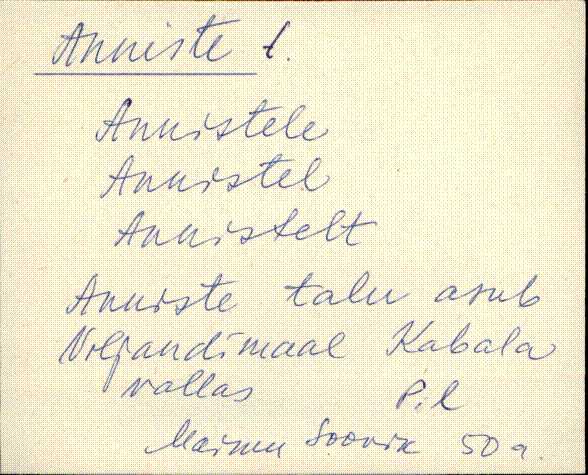 Anniste t.
Annistele
Annistel
Annistelt
Anniste talu asub
Viljandimaal Kabala
vallas P.l
Maimu Soovik 50 a.